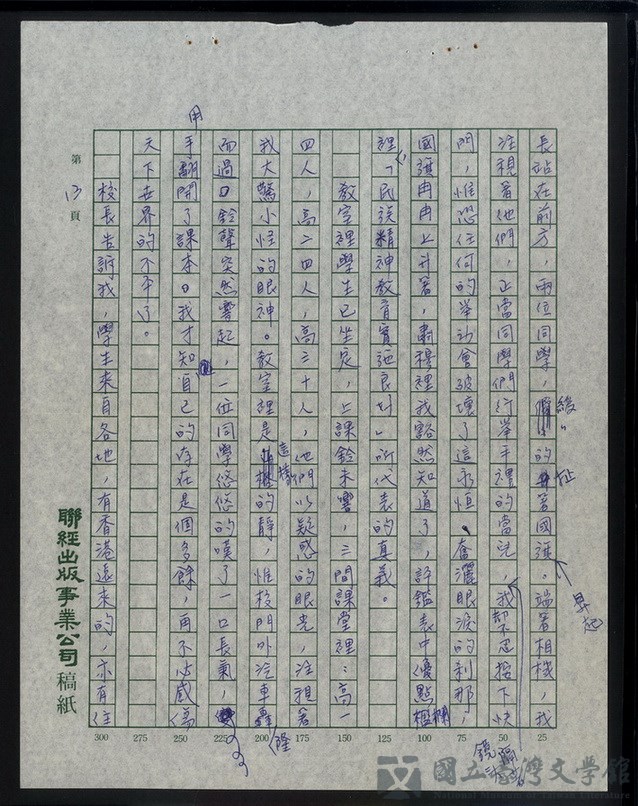 長站在前方，兩位同學，緩緩的扯著國旗。端著相機，我
注視著他們，正當同學們行舉手禮的當兒，我卻不忍按下快
門，惟恐任何的舉動會破壞了這永恒。奮灑眼淚的剎那，
國旗冉冉上升著，肅穆裡我豁然知道了，評鑑表中優點欄
裡「民族精神教育實施良好」所代表的真義。
教室裡學生已坐定，上課鈴未響，三間課堂裡：高一
四人，高二四人，高三十人，他們以疑惑的眼光，注視著
我大驚小怪的眼神。教室裡是這樣的靜，惟校門外汽車轟隆
而過。鈴聲突然響起，一位同學悠悠的嘆了一口長氣，
用手翻開了課本。我才知自己的存在是個多餘，再不必感傷
天下世界的不平了。
校長告訴我，學生來自各地，有香港遠來的，亦有住
昇起
25
50
75
100
125
150
175
200
225
250
275
300
第13頁
聯經出版事業公司 稿紙
國立臺灣文學館
National Museum of Taiwan Literature